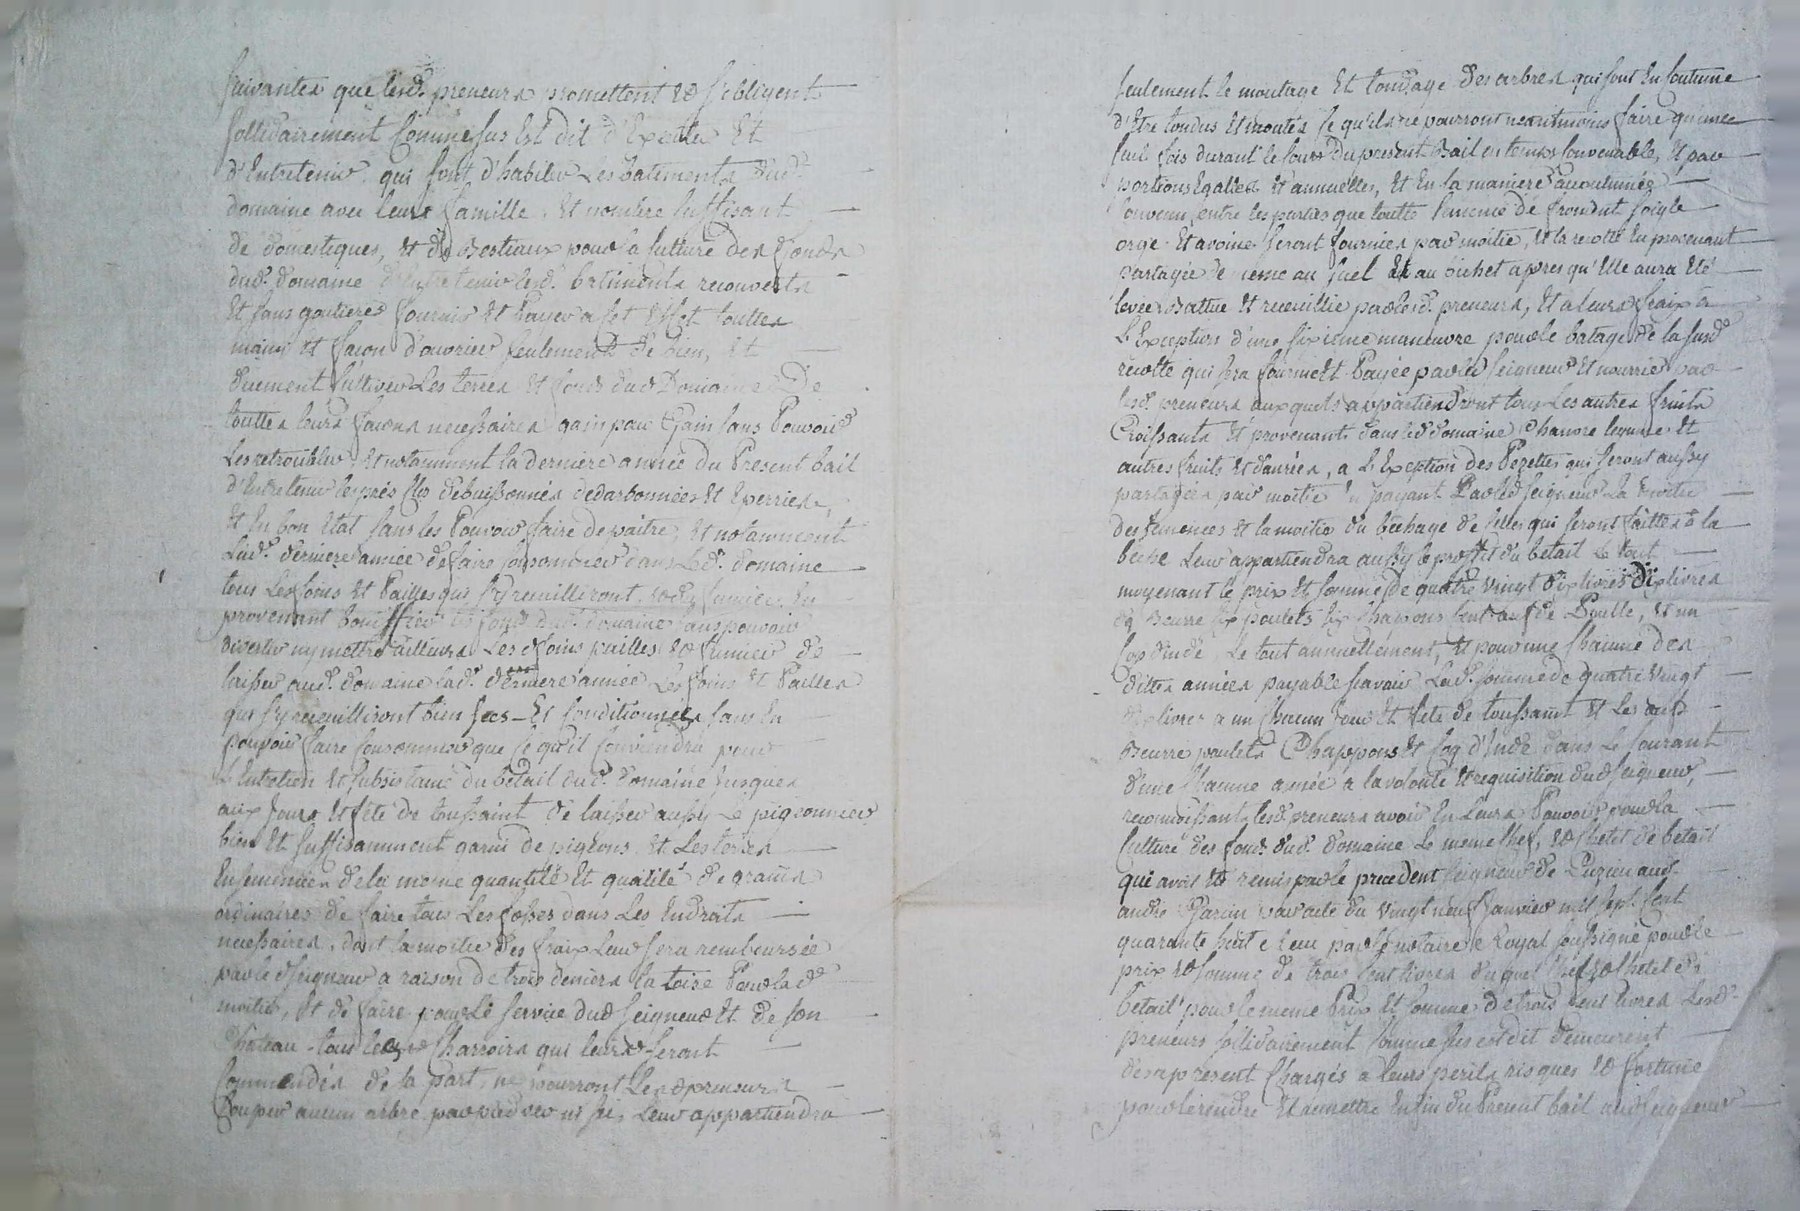 suivantes que lesd. preneurs promettent et s'obligent
sollidairement comme sus est dit d'executer et
d'entretenir qui sont d'habiter les batiments dud.
domaine avec leurs famille, et nombre suffisant
de domestiques, et de Bestiaux pour la culture des fonds
dud. domaine d'entretenir lesd. batiments recouverts
et sans goutieres fournir et Payer a cet effet touttes
mains et façon d'ouvrier seulement de bien, et
duement cultiver Les terres et fonds dud Domaine De
touttes leurs façons necessaires gain par Gain sans Pouvoir
Les retroubler, et notamment la derniere année du Present bail
d'entretenir les prés clos debuissonnés dedarbonnées et eperriés,
et en bon etat sans les Pouvoir faire depaitre, et notamment
Lad. derniere année de faire consommer dans Led. domaine
tous Les foins et Pailles qui s'y receuilliront et du fumier en
provenant bonniffier les fonds dud. domaine sans pouvoir
divertir ny mettre ailleurs Les foins pailles et fumier de
laisser aud. domaine lad. derniere année Les foins et Pailles
qui s'y receuilliront bien secs et conditionnés sans en
pouvoir faire consommer que ce qu'il conviendra pour
L'entretien et subsistance du betail dud. domaine jusques
aux jours et fête de toussaint de laisser aussy Le pigeonnier
bien et suffisamment garni de pigeons et Les terres
ensemencées de la meme quantité et qualité de grains
ordinaires de faire tous Les fossés dans Les endroits
necessaires, dont la moitie des fraix Leur sera remboursée
par le d seigneur a raison de trois deniers la toise Pour lad
moitie, et de faire pour Le service dud seigneur et de son
Château tous les charroirs qui leurs seront
Commendés de sa part, ne pourront Lesd preneurs
Couper aucun arbre par pied ver ni sec, Leur appartiendra
seulement le montage et tondage des arbres qui sont en coutume
d'être tondus et montés ce qu'ils ne pourront neantmoins faire qu'une
seul fois durant le cours du present Bail en temps convenable, et par
portions egalles et annuelles, et en la maniere accoutumée
convenu entre les parties que toutte semence de froment soigle
orge et avoine seront fournies par moitie, et la recolte en provenant
partagée de meme au suel et au bichet apres qu'elle aura eté
levée Battue et receuillie par lesd. preneurs, et a leurs fraix a
L'exception d'une sixieme manœuvre pour le batage de la susd
recolte qui sera fournie et Payée par led seigneur et nourrie par
lesd. preneurs auxquels appartiendront tous Les autres fruits
Croissants et provenants dans led domaine chanvre legume et
autres fruits et danrées, a L'exception des Pezettes qui seront aussy
partagées par moitie en payant Par led seigneur La moitie
des semences et la moitie du bechage de celles qui seront faittes a la
beche Leur appartiendra aussy le proffit du betail Le tout
moyenant le prix et somme de quatre vingt dix livres dix livres
de Beurre six poulets six chapons cent œufs de Poulle, et un
Coq dinde, Le tout annuellement, et pour une chacune des
dittes années payable scavoir Lad. somme de quatre vingt
dix livres a un chacun jour et fête de toussaint et Les œufs
Beurre poulets Chappons et Coq d'inde dans Le courant
d'une chacune année a la volonté et requisition dud seigneur,
reconnoissants lesd preneurs avoir en Leurs Pouvoir pour la
Culture des fonds dud. domaine Le meme chef, et chetel de betail
qui avoit eté remis par le precedent seigneur de Puzieu aud
andré Parcin par acte du vingt neuf janvier mil sept cent
quarante huit e reçu par le notaire e Royal soussigné pour le
prix et somme de trois cent livres duquel chef et chetel de
betail pour le meme Prix et somme de trois cent livres Lesd.
preneurs sollidairement comme sus est dit demeurent
des a present Chargés a leurs perils risques et fortune
pour le rendre et remettre en fin du Present bail aud seigneur